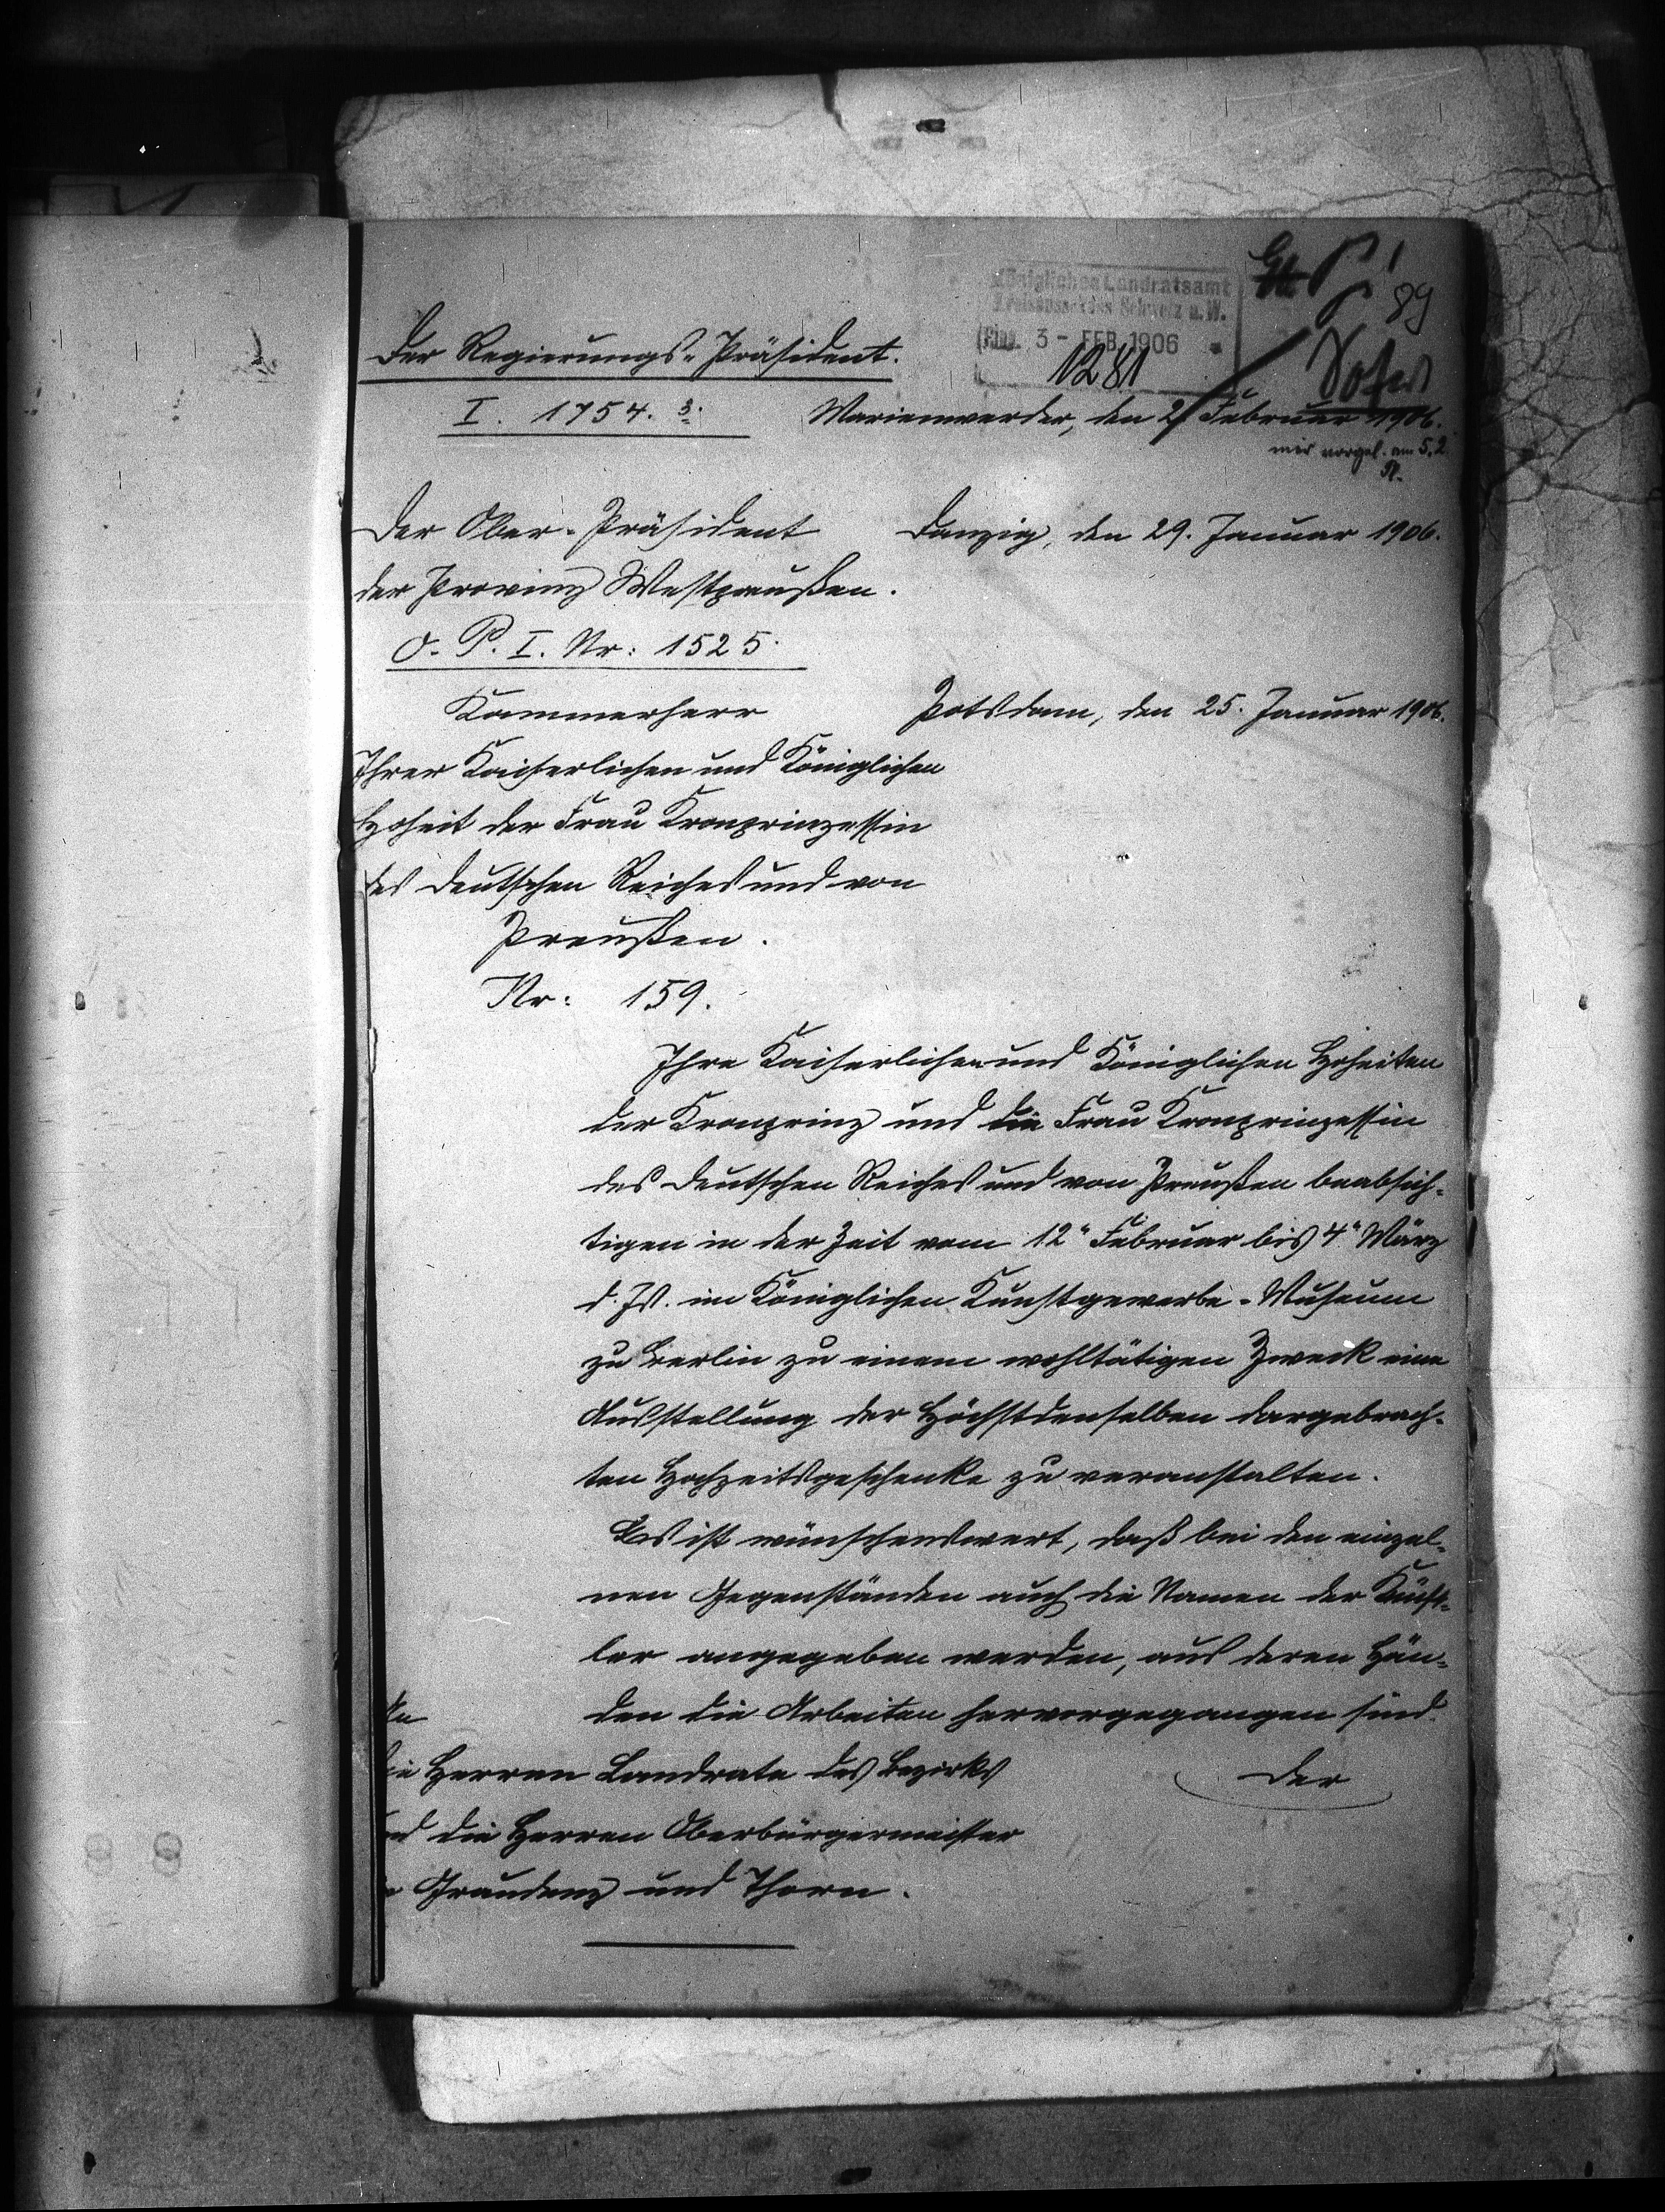 89
Königliches Landratsamt
Kreisausschuss Schwetz a. W.
Eing. 3 - FEB. 1906
1281
Sofort
Der Regierungs-Präsident.
I. 1754. 3.
Marienwerder, den 2. Februar 1906.
mir vorgel. am 5.2.
Der Ober-Präsident
Danzig, den 29. Januar 1906.
der Provinz Westpreußen.
O. P. I. Nr: 1525.
Kammerherr
Potsdam, den 25. Januar 1906.
Ihrer Kaiserlichen und Königlichen
Hoheit der Frau Kronprinzessin
des Deutschen Reiches und von
Preußen.
Nr: 159.
Ihre Kaiserlichen und Königlichen Hoheiten
der Kronprinz und die Frau Kronprinzessin
des Deutschen Reiches und von Preußen beabsich-
tigen in der Zeit vom 12" Februar bis 4" März
d. Js. im Königlichen Kunstgewerbe-Museum
zu Berlin zu einem wohltätigen Zweck eine
Ausstellung der Höchstdenselben dargebrach-
ten Hochzeitsgeschenke zu veranstalten.
Es ist wünschenswert, daß bei den einzel-
nen Gegenständen auch die Namen der Künst-
ler angegeben werden, aus deren Hän-
den die Arbeiten hervorgegangen sind.
Der
An
die Herren Landrate des Bezirks
und die Herren Oberbürgermeister
in Graudenz und Thorn.